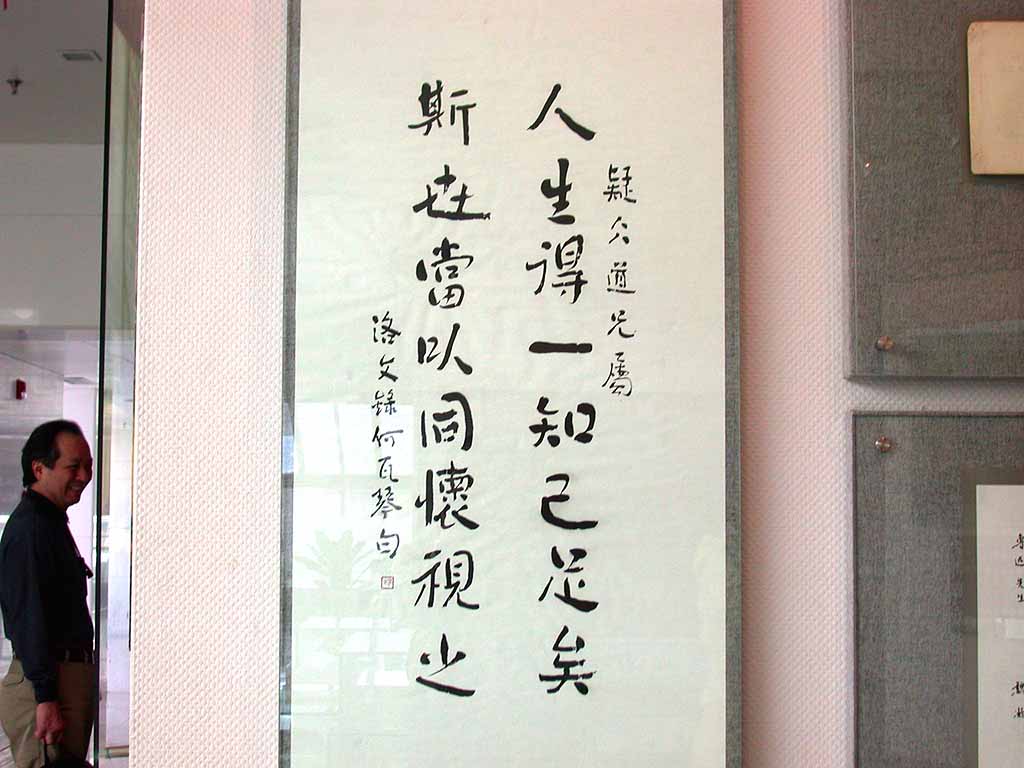 疑仌道兄屬
人生得一知已足矣
斯世當以同懷視之
洛文錄何瓦琴句
魯迅先生